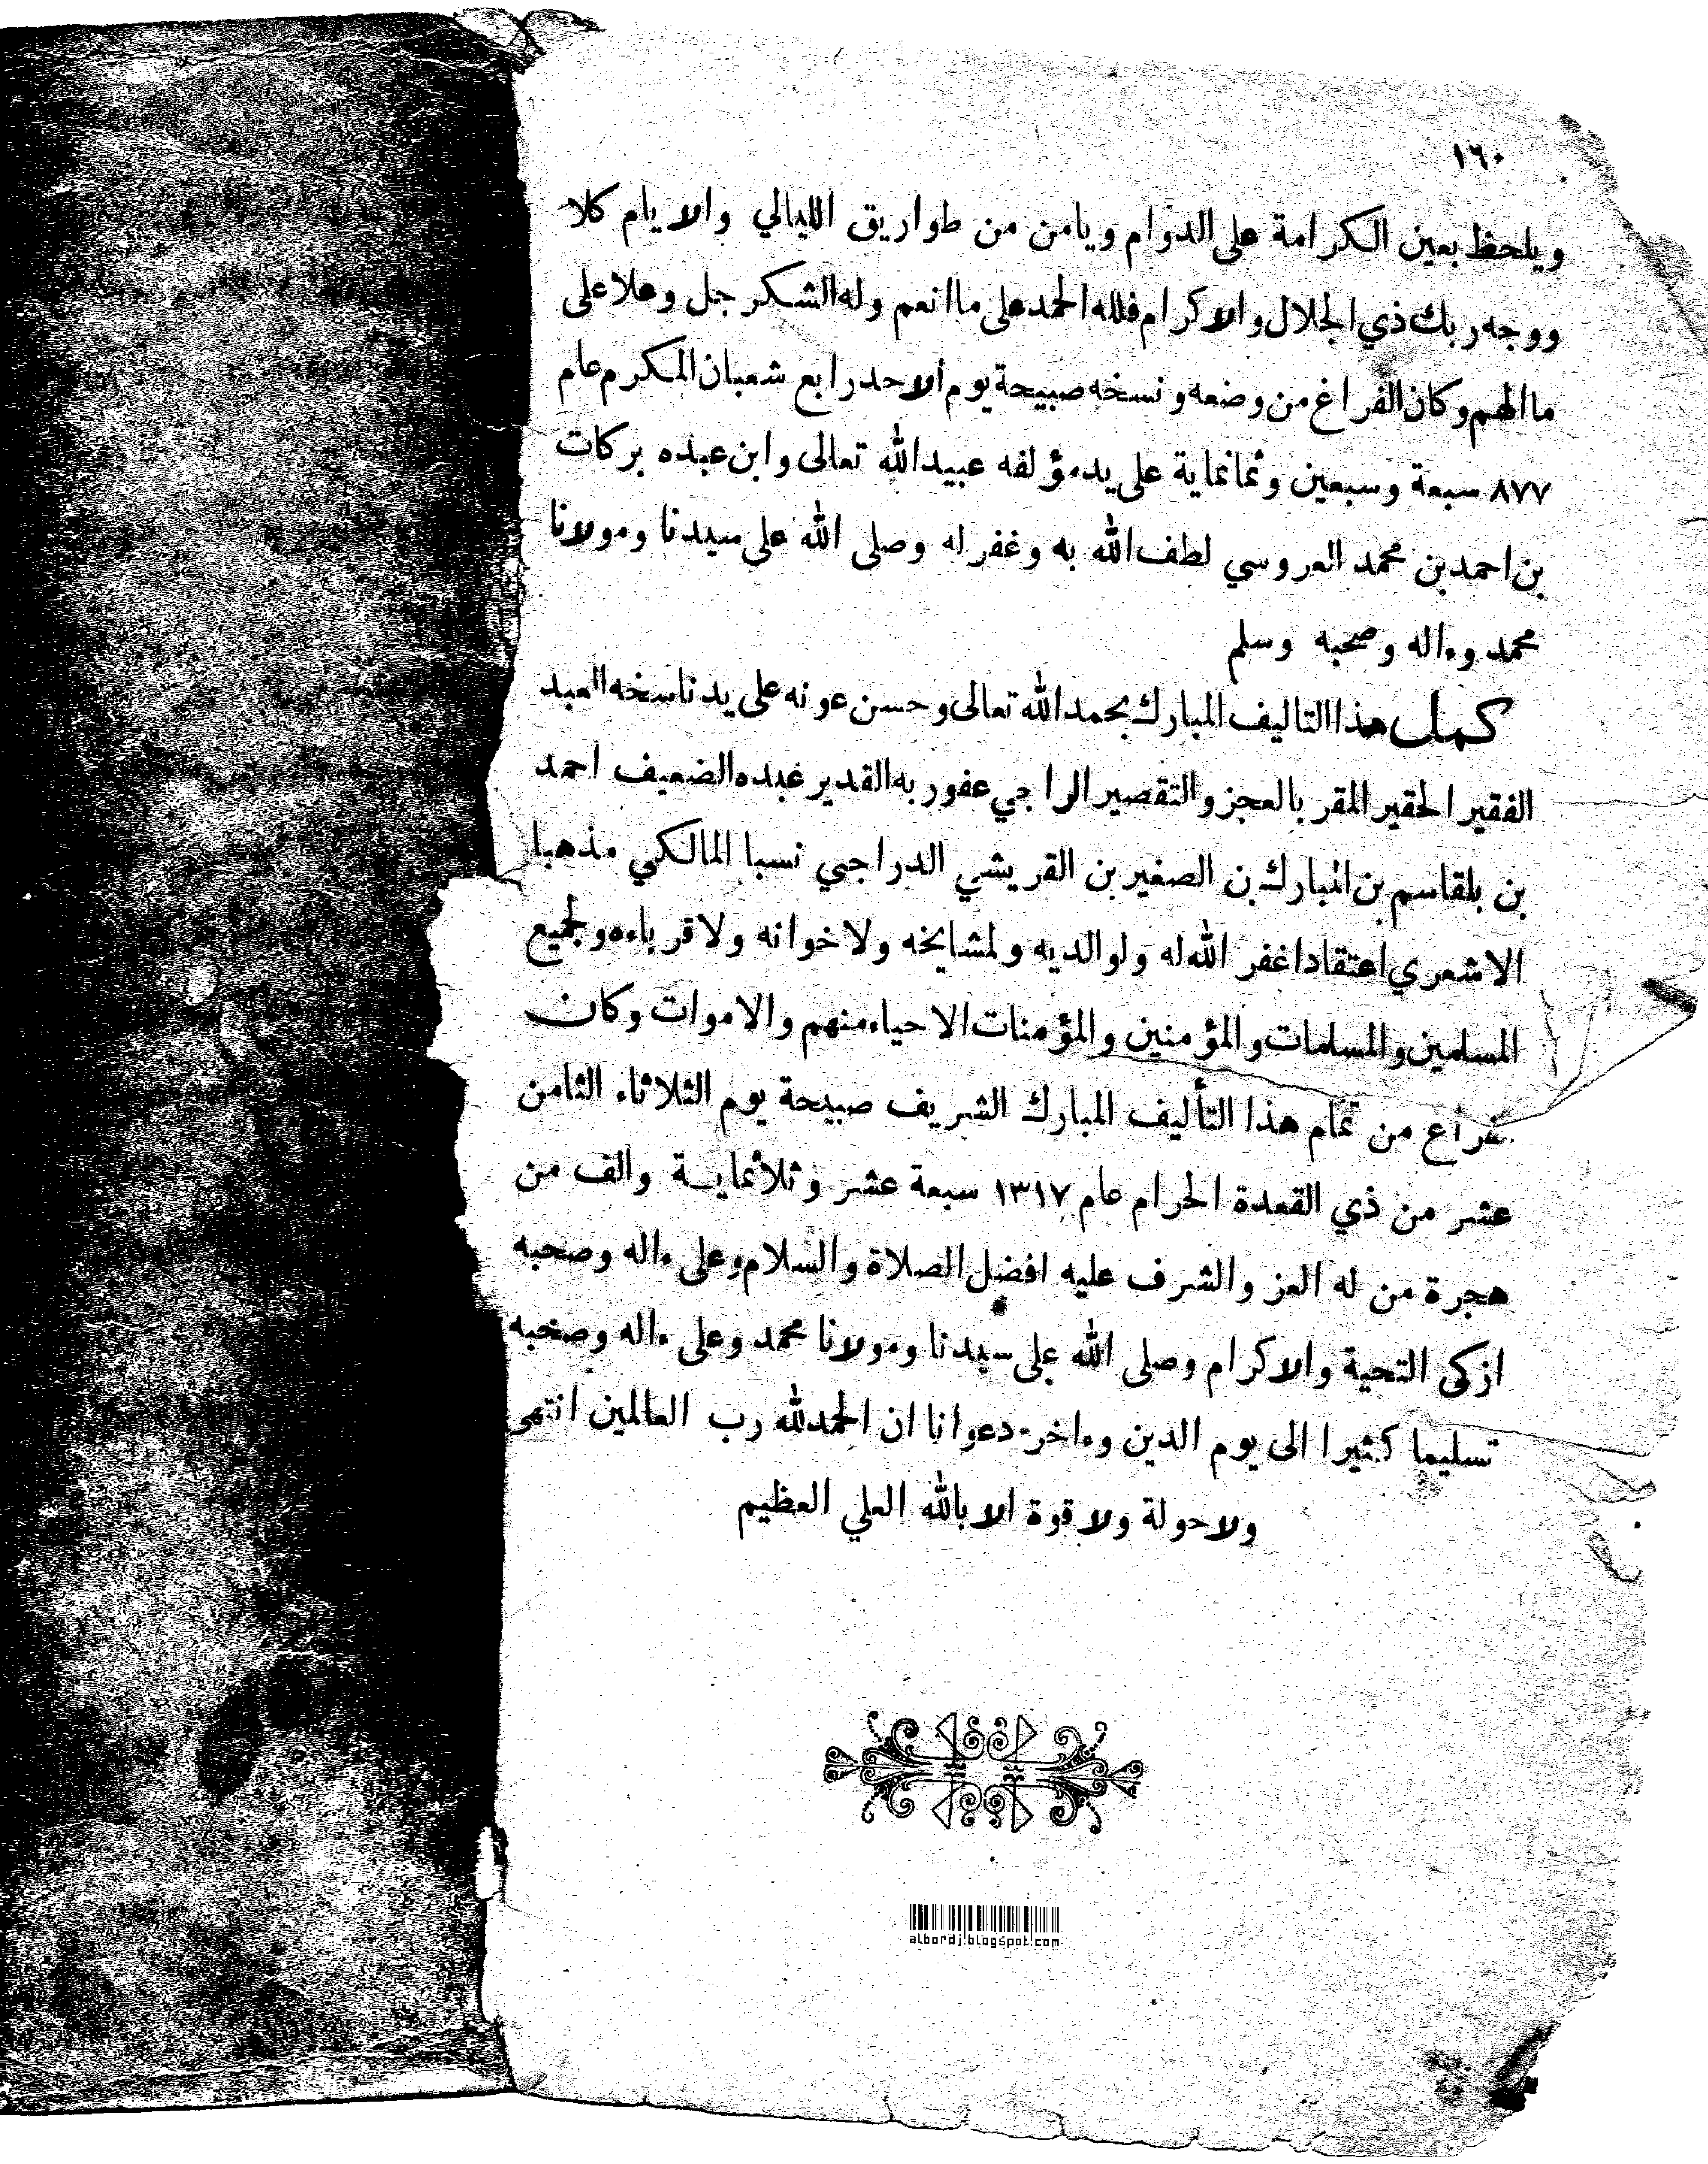 ١٦٠
ويلحظ بعين الكرامة على الدوام ويامن من طواريق الليالي والايام كلا
ووجه ربك ذي الجلال والاكرام فلله الحمد على ما انعم وله الشكر جل وعلا على
ما الهم وكان الفراغ من وضعه ونسخه صبيحة يوم الاحد رابع شعبان المكرم عام
٨٧٧ سبعة وسبعين وثمانماية على يد مؤلفه عبيد الله تعالى وابن عبده بركات
بن احمد بن محمد العروسي لطف الله به وغفر له وصلى الله على سيدنا ومولانا
محمد وءاله وصحبه وسلم
كمل هذا التاليف المبارك بحمد الله تعالى وحسن عونه على يد ناسخه العبد
الفقير الحقير المقر بالعجز والتقصير الراجي عفو ربه القدير عبده الضعيف احمد
بن بلقاسم بن المبارك بن الصغير بن القريشي الدراجي نسبا المالكي مذهبا
الاشعري اعتقادا غفر الله له ولوالديه ولمشايخه ولاخوانه ولاقرباءه ولجميع
المسلمين والمسلمات والمؤمنين والمؤمنات الاحياء منهم والاموات وكان
فراغ من تمام هذا التأليف المبارك الشريف صبيحة يوم الثلاثاء الثامن
عشر من ذي القعدة الحرام عام ١٣١٧ سبعة عشر وثلاثماية والف من
هجرة من له العز والشرف عليه افضل الصلاة والسلام وعلى ءاله وصحبه
ازكى التحية والاكرام وصلى الله على سيدنا ومولانا محمد وعلى ءاله وصحبه
تسليما كثيرا الى يوم الدين وءاخر دعوانا ان الحمد لله رب العالمين انتهى
ولاحولة ولاقوة الا بالله العلي العظيم
albordj.blogspot.com